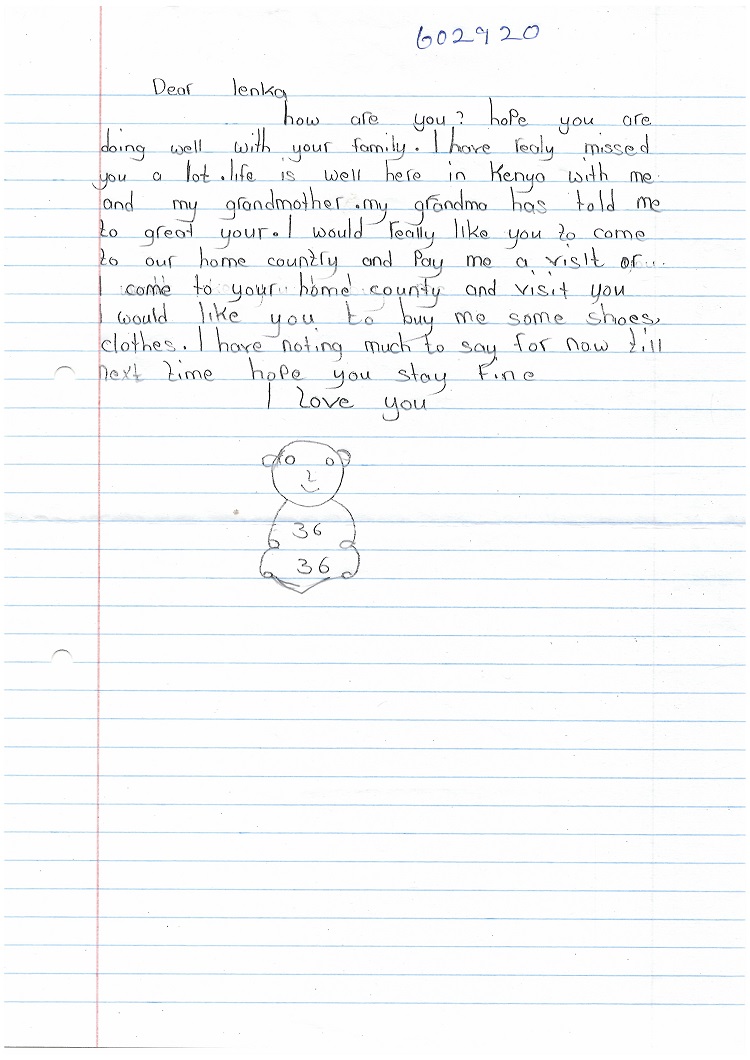 602920
Dear lenka
how are you? hope you are
doing well with your family. I have realy missed
you a lot. life is well here in Kenya with me
and my grandmother. my grandma has told me
to great your. I would really like you to come
to our home country and Pay me a visit or...
I come to your home county and visit you
I would like you to buy me some shoes,
clothes. I have noting much to say for now till
next time hope you stay Fine
I Love you
36
36